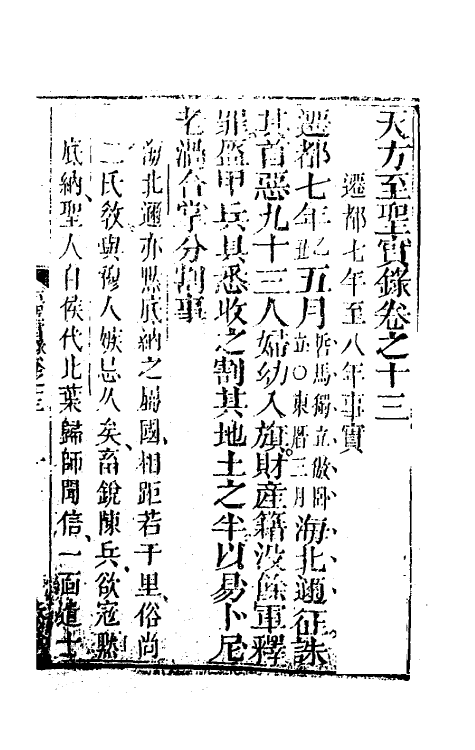 天方至聖實錄卷之十三
遷都七年至八年事實
遷都七年乙丑五月哲馬獨立敖勿○東曆三月海北邇征誅
其首惡九十三人婦幼入旗財産籍没餘軍釋
罪盔甲兵具悉收之割其地土之半以易卜尼
老溫台掌分割事
海北邇亦默底納之屬國相距若干里俗尚
二氏敎與穆人嫉忌久矣畜銳陳兵欲寇默
底納聖人自候代北葉歸師聞信一面遣士